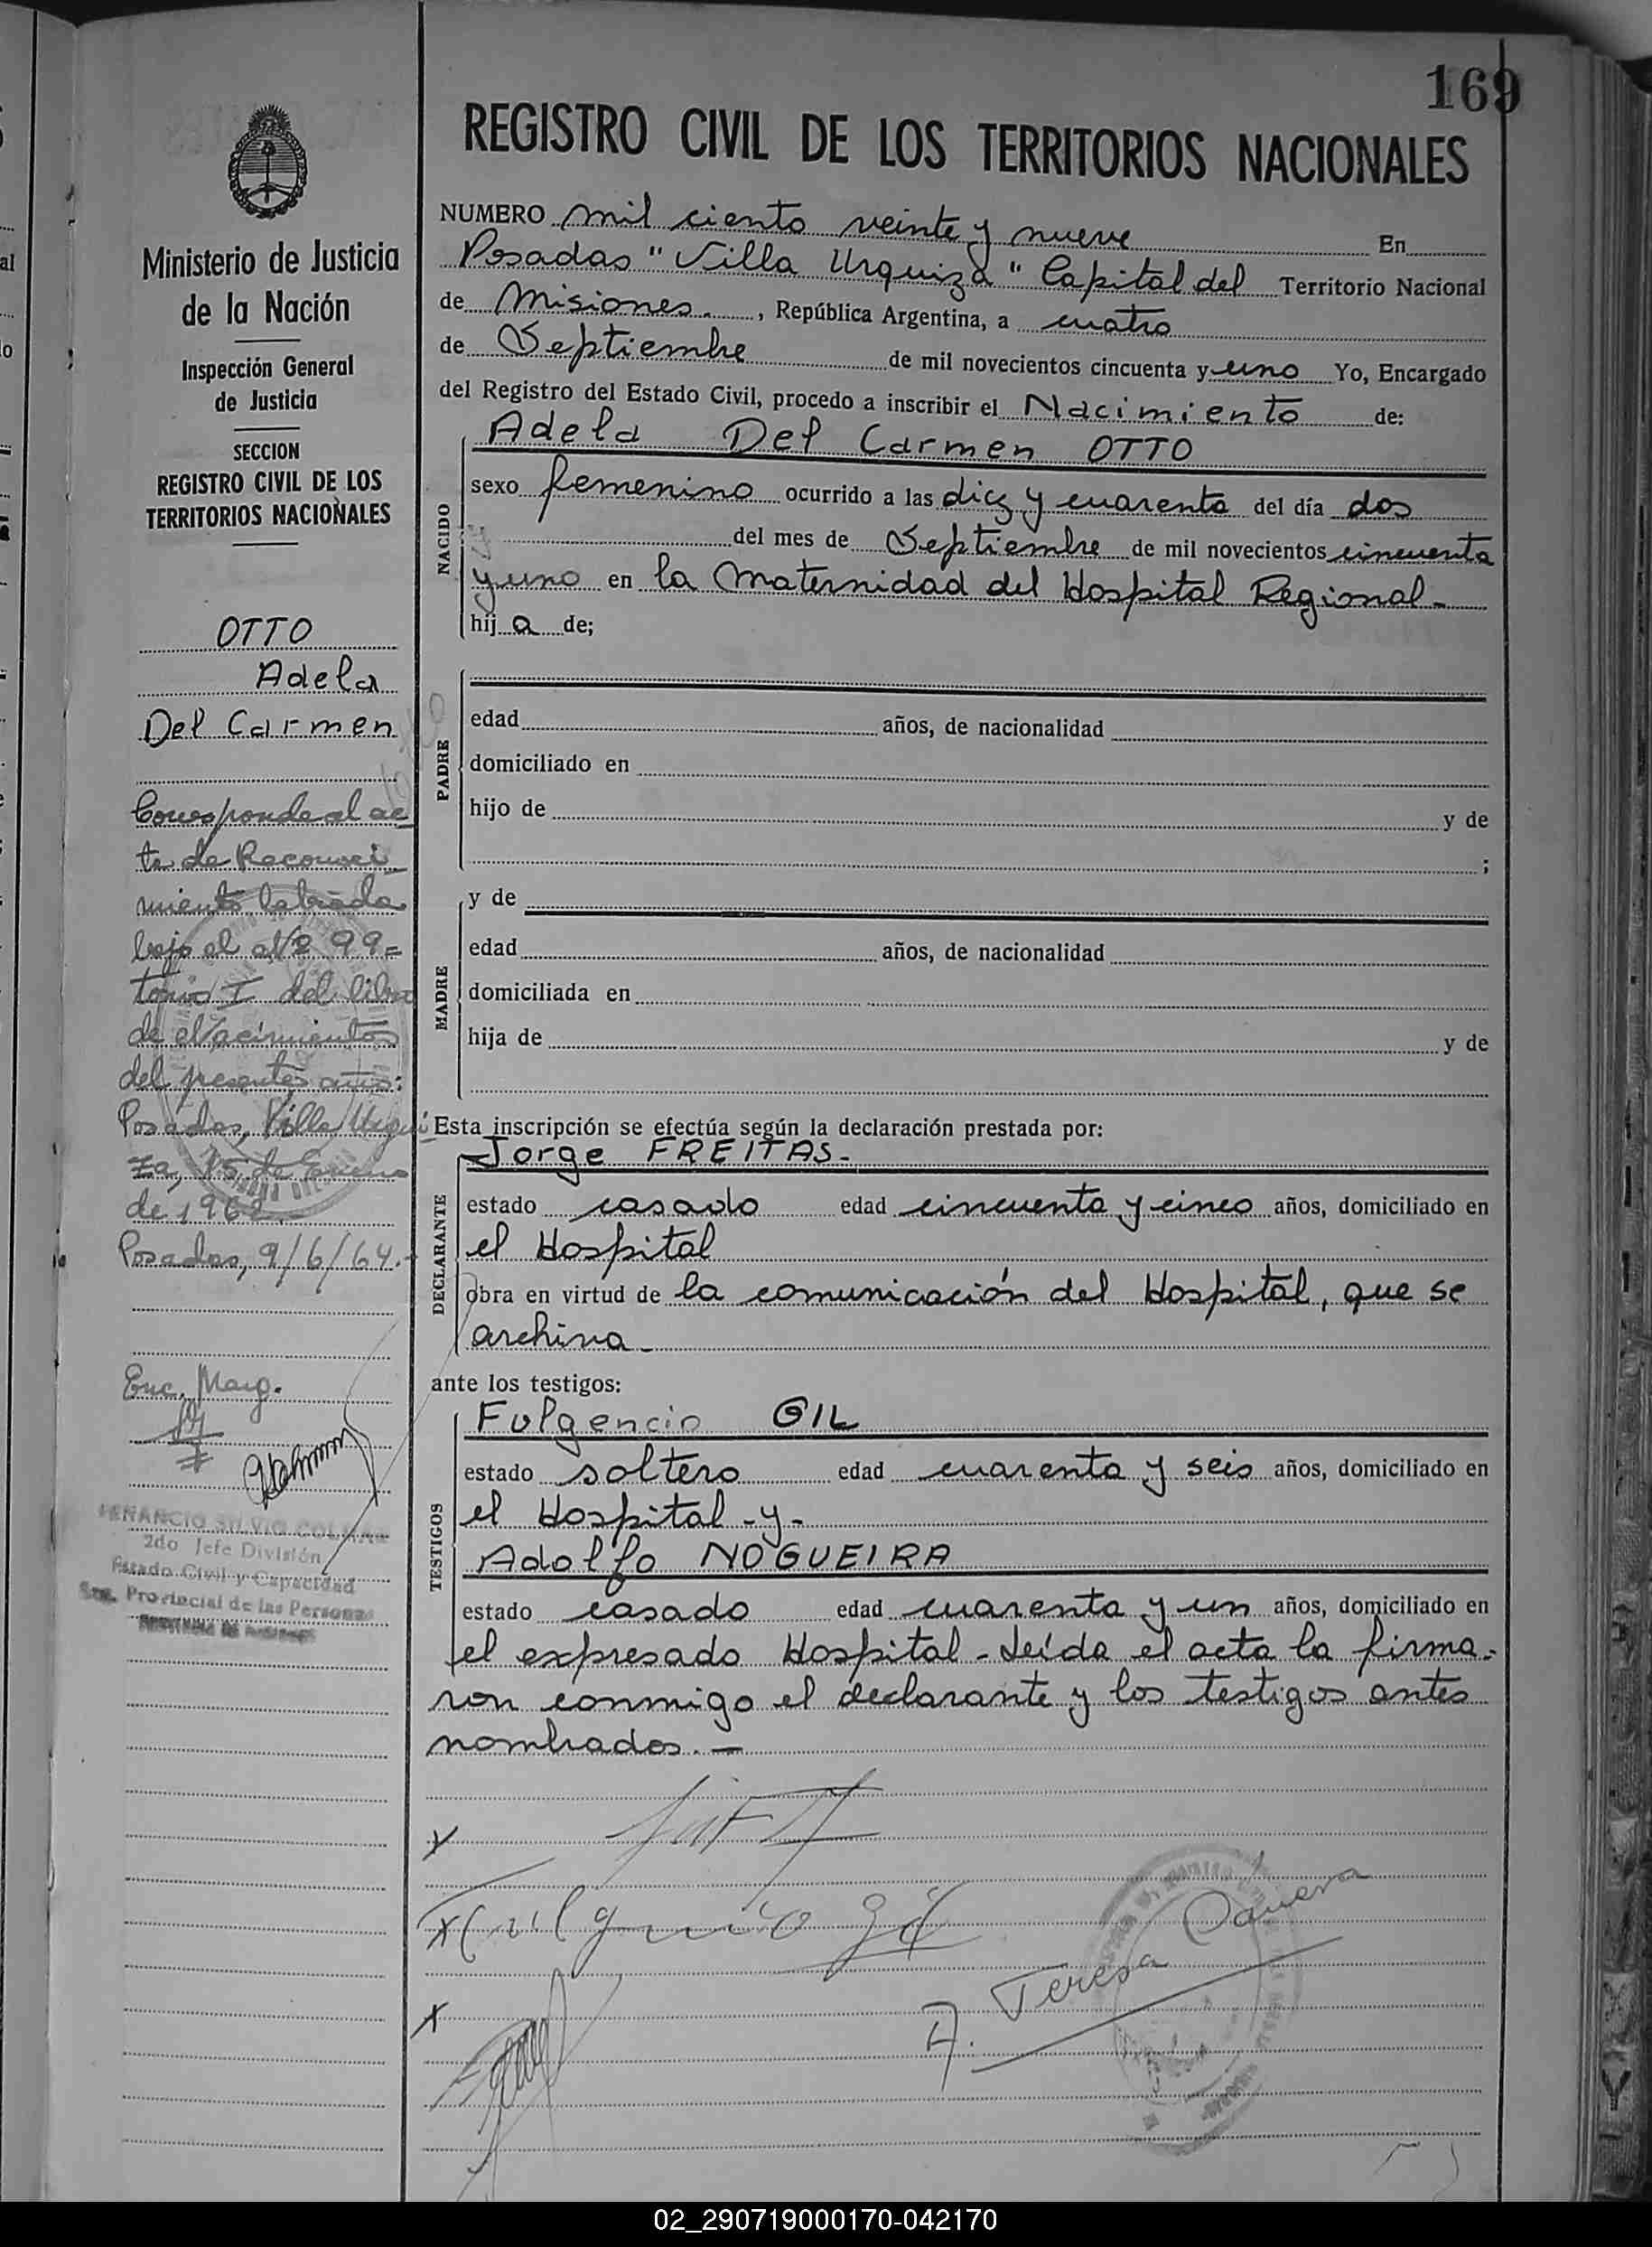 169
REGISTRO CIVIL DE LOS TERRITORIOS NACIONALES
Ministerio de Justicia
de la Nación
Inspección General
de Justicia
SECCION
REGISTRO CIVIL DE LOS
TERRITORIOS NACIONALES
OTTO
Adela
Del Carmen
Corresponde al ac
ta de Reconoci
miento labrada
bajo el Nº 99=
tomo I del libro
de Nacimientos
del presente año:
Posadas, Villa Urqui
za, 15 de Enero
de 1962.
Posadas, 9/6/64.-
Enc. Marg.
2do Jefe División
Estado Civil y Capacidad
Provincial de las Personas
NUMERO mil ciento veinte y nueve En
Posadas "Villa Urquiza" Capital del Territorio Nacional
de Misiones. , República Argentina, a cuatro
de Septiembre de mil novecientos cincuenta y uno Yo, Encargado
del Registro del Estado Civil, procedo a inscribir el Nacimiento de:
Adela Del Carmen OTTO
NACIDO
sexo femenino ocurrido a las diez y cuarenta del día dos
del mes de Septiembre de mil novecientos cincuenta
y uno en la Maternidad del Hospital Regional-
hij a de;
PADRE
edad años, de nacionalidad
domiciliado en
hijo de y de
;
y de
MADRE
edad años, de nacionalidad
domiciliada en
hija de y de
Esta inscripción se efectúa según la declaración prestada por:
Jorge FREITAS-
DECLARANTE
estado casado edad cincuenta y cinco años, domiciliado en
el Hospital
obra en virtud de la comunicación del Hospital, que se
archiva-
ante los testigos:
Fulgencio GIL
TESTIGOS
estado soltero edad cuarenta y seis años, domiciliado en
el Hospital -y-
Adolfo NOGUEIRA
estado casado edad cuarenta y un años, domiciliado en
el expresado Hospital - Leída el acta la firma-
ron conmigo el declarante y los testigos antes
nombrados.-
x
x Fulgencio Gil
x
A. Teresa
02_290719000170-042170